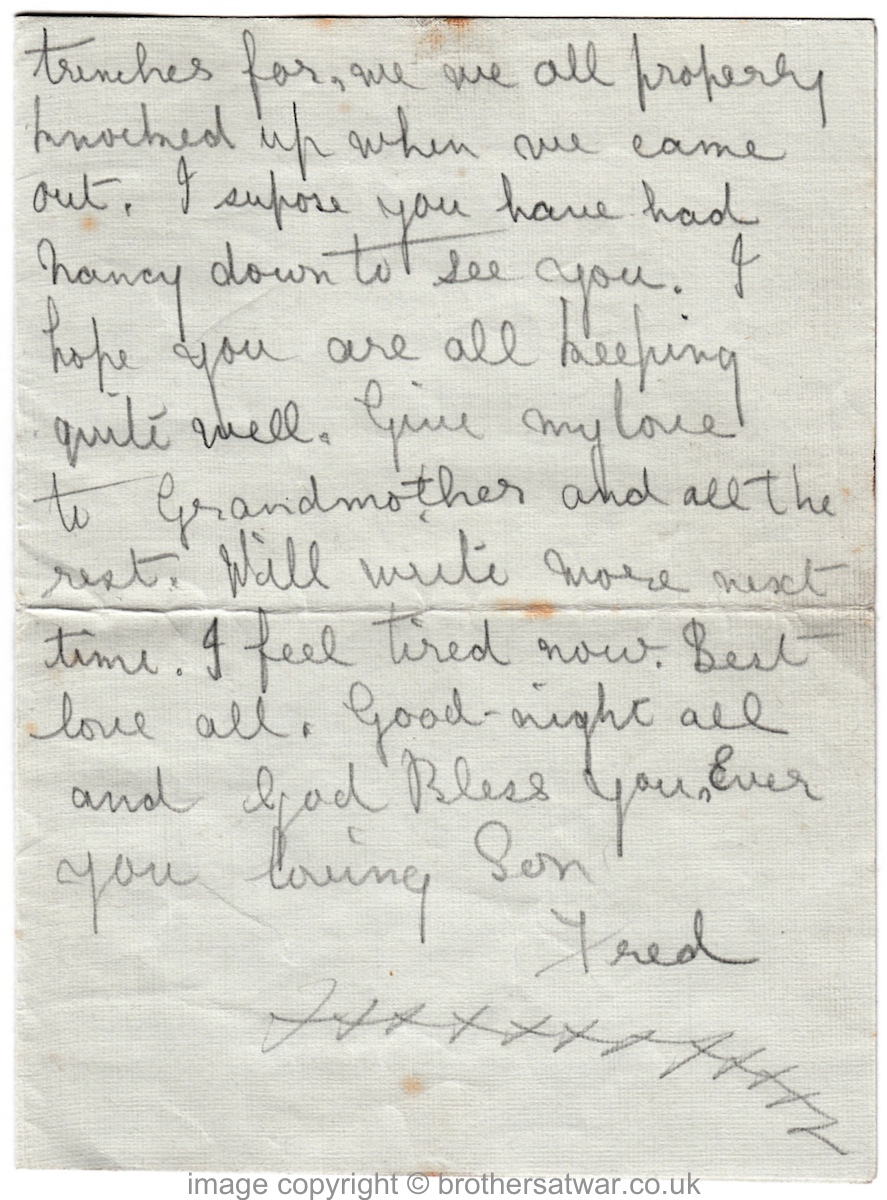 trenches for, we we all properly
knocked up when we came
out. I supose you have had
Nancy down to see you. I
hope you are all keeping
quite well. Give my love
to Grandmother and all the
rest. Will write more next
time. I feel tired now. Best
love all. Good-night all
and God Bless you, Ever
you loving Son
Fred
xxxxxxxxxxxx
image copyright © brothersatwar.co.uk